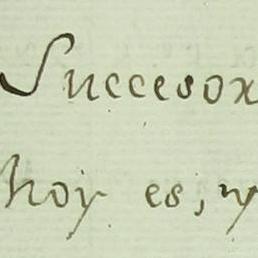 Succesor
hoy es, y